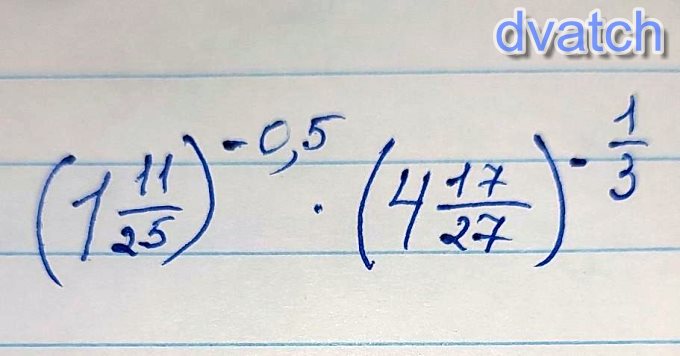 dvatch
(1 11/25)^-0,5 · (4 17/27)^-1/3